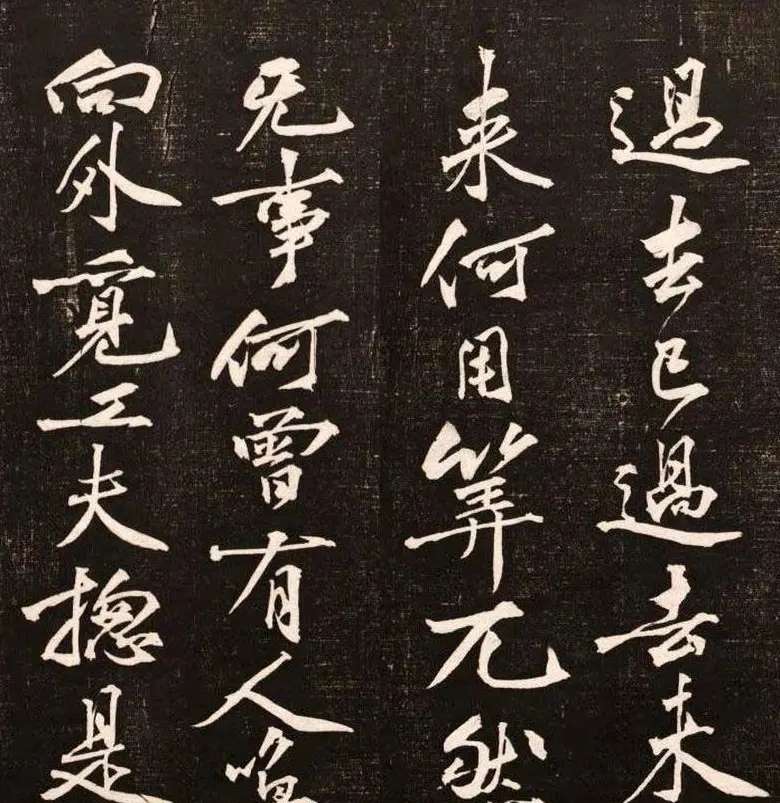 過去已過去未
来何用筭兀然
无事何曾有人喚
向外覓工夫摠是